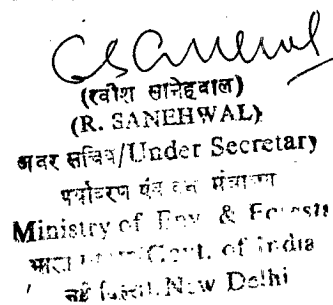 (रवीश सानेहवाल)
(R. SANEHWAL)
अवर सचिव/Under Secretary
पर्यावरण एंव वन मंत्रालय
Ministry of Env. & Forests
भारत /Govt. of India
नई दिल्ली New Delhi